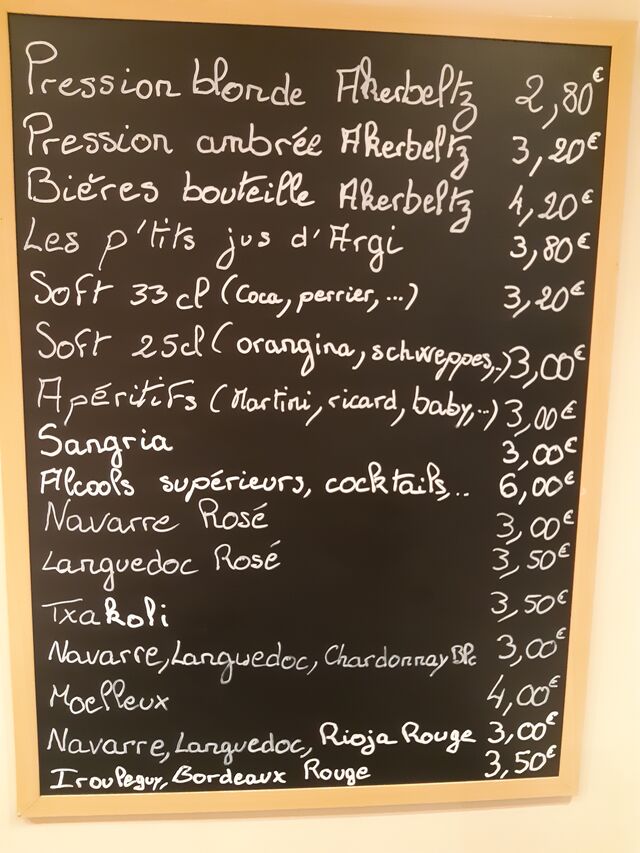 Pression blonde Akerbeltz 2,80€
Pression ambrée Akerbeltz 3,20€
Bières bouteille Akerbeltz 4,20€
Les p'tits jus d'Argi 3,80€
Soft 33cl (Coca, perrier, ...) 3,20€
Soft 25cl (orangina, schweppes,..) 3,00€
Apéritifs (Martini, ricard, baby,..) 3,00€
Sangria 3,00€
Alcools supérieurs, cocktails,.. 6,00€
Navarre Rosé 3,00€
Languedoc Rosé 3,50€
Txakoli 3,50€
Navarre, Languedoc, Chardonnay Blc 3,00€
Moelleux 4,00€
Navarre, Languedoc, Rioja Rouge 3,00€
Irouleguy, Bordeaux Rouge 3,50€